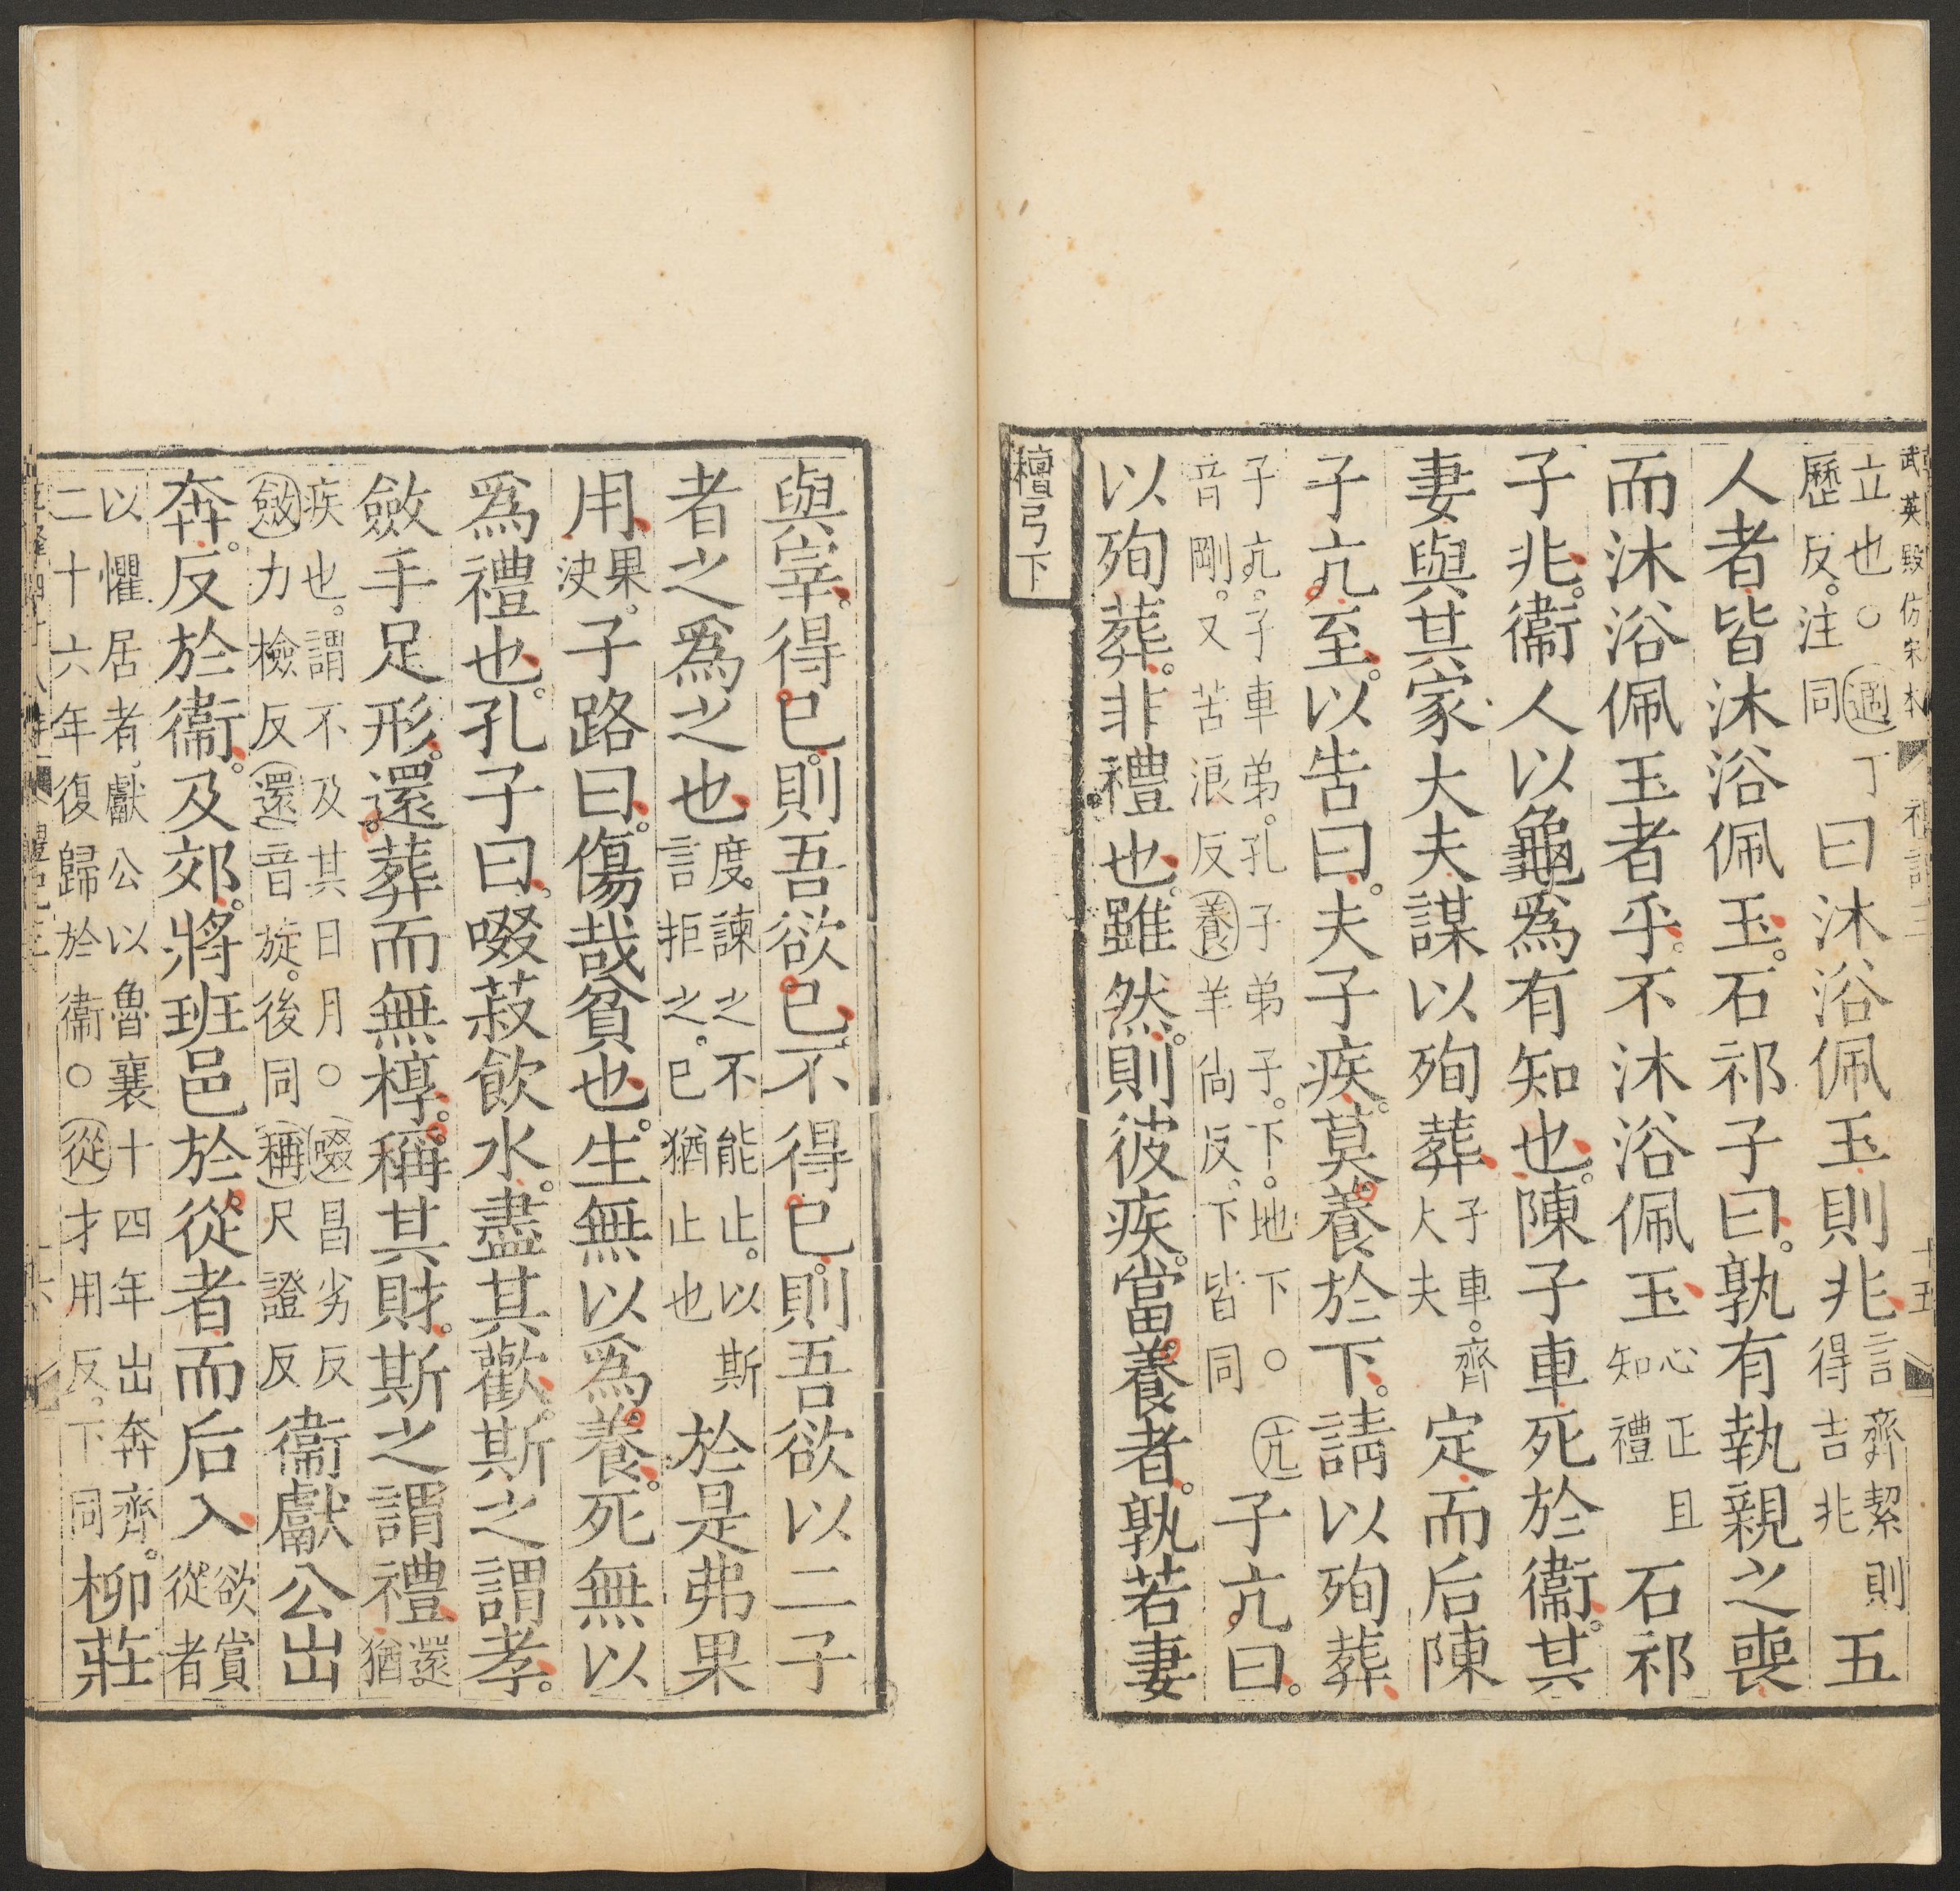 武英殿仿宋本 禮記三 十五
立也○適丁歷反。注同曰沐浴佩玉則兆言齊絜則得吉兆五
人者皆沐浴佩玉。石祁子曰。孰有執親之喪
而沐浴佩玉者乎。不沐浴佩玉心正且知禮石祁
子兆。衞人以龜爲有知也。陳子車死於衞。其
妻與其家大夫謀以殉葬子車。齊大夫定而后陳
子亢至。以告曰。夫子疾。莫養於下。請以殉葬
子亢。子車弟。孔子弟子。下。地下○亢音剛。又苦浪反養羊尙反。下皆同子亢曰。
以殉葬。非禮也。雖然。則彼疾。當養者。孰若妻
檀弓下
與宰。得已。則吾欲已。不得已。則吾欲以二子
者之爲之也度。諫之不能止。以斯言拒之。已猶止也於是弗果
用果。決子路曰。傷哉貧也。生無以爲養。死無以
爲禮也。孔子曰。啜菽飲水。盡其歡。斯之謂孝。
斂手足形。還葬而無椁。稱其財。斯之謂禮還。猶
疾也。謂不及其日月○啜昌劣反斂力檢反還音旋。後同稱尺證反衞獻公出
奔。反於衞。及郊。將班邑於從者而后入欲賞從者
以懼居者。獻公以魯襄十四年出奔齊。二十六年復歸於衞○從才用反。下同柳莊